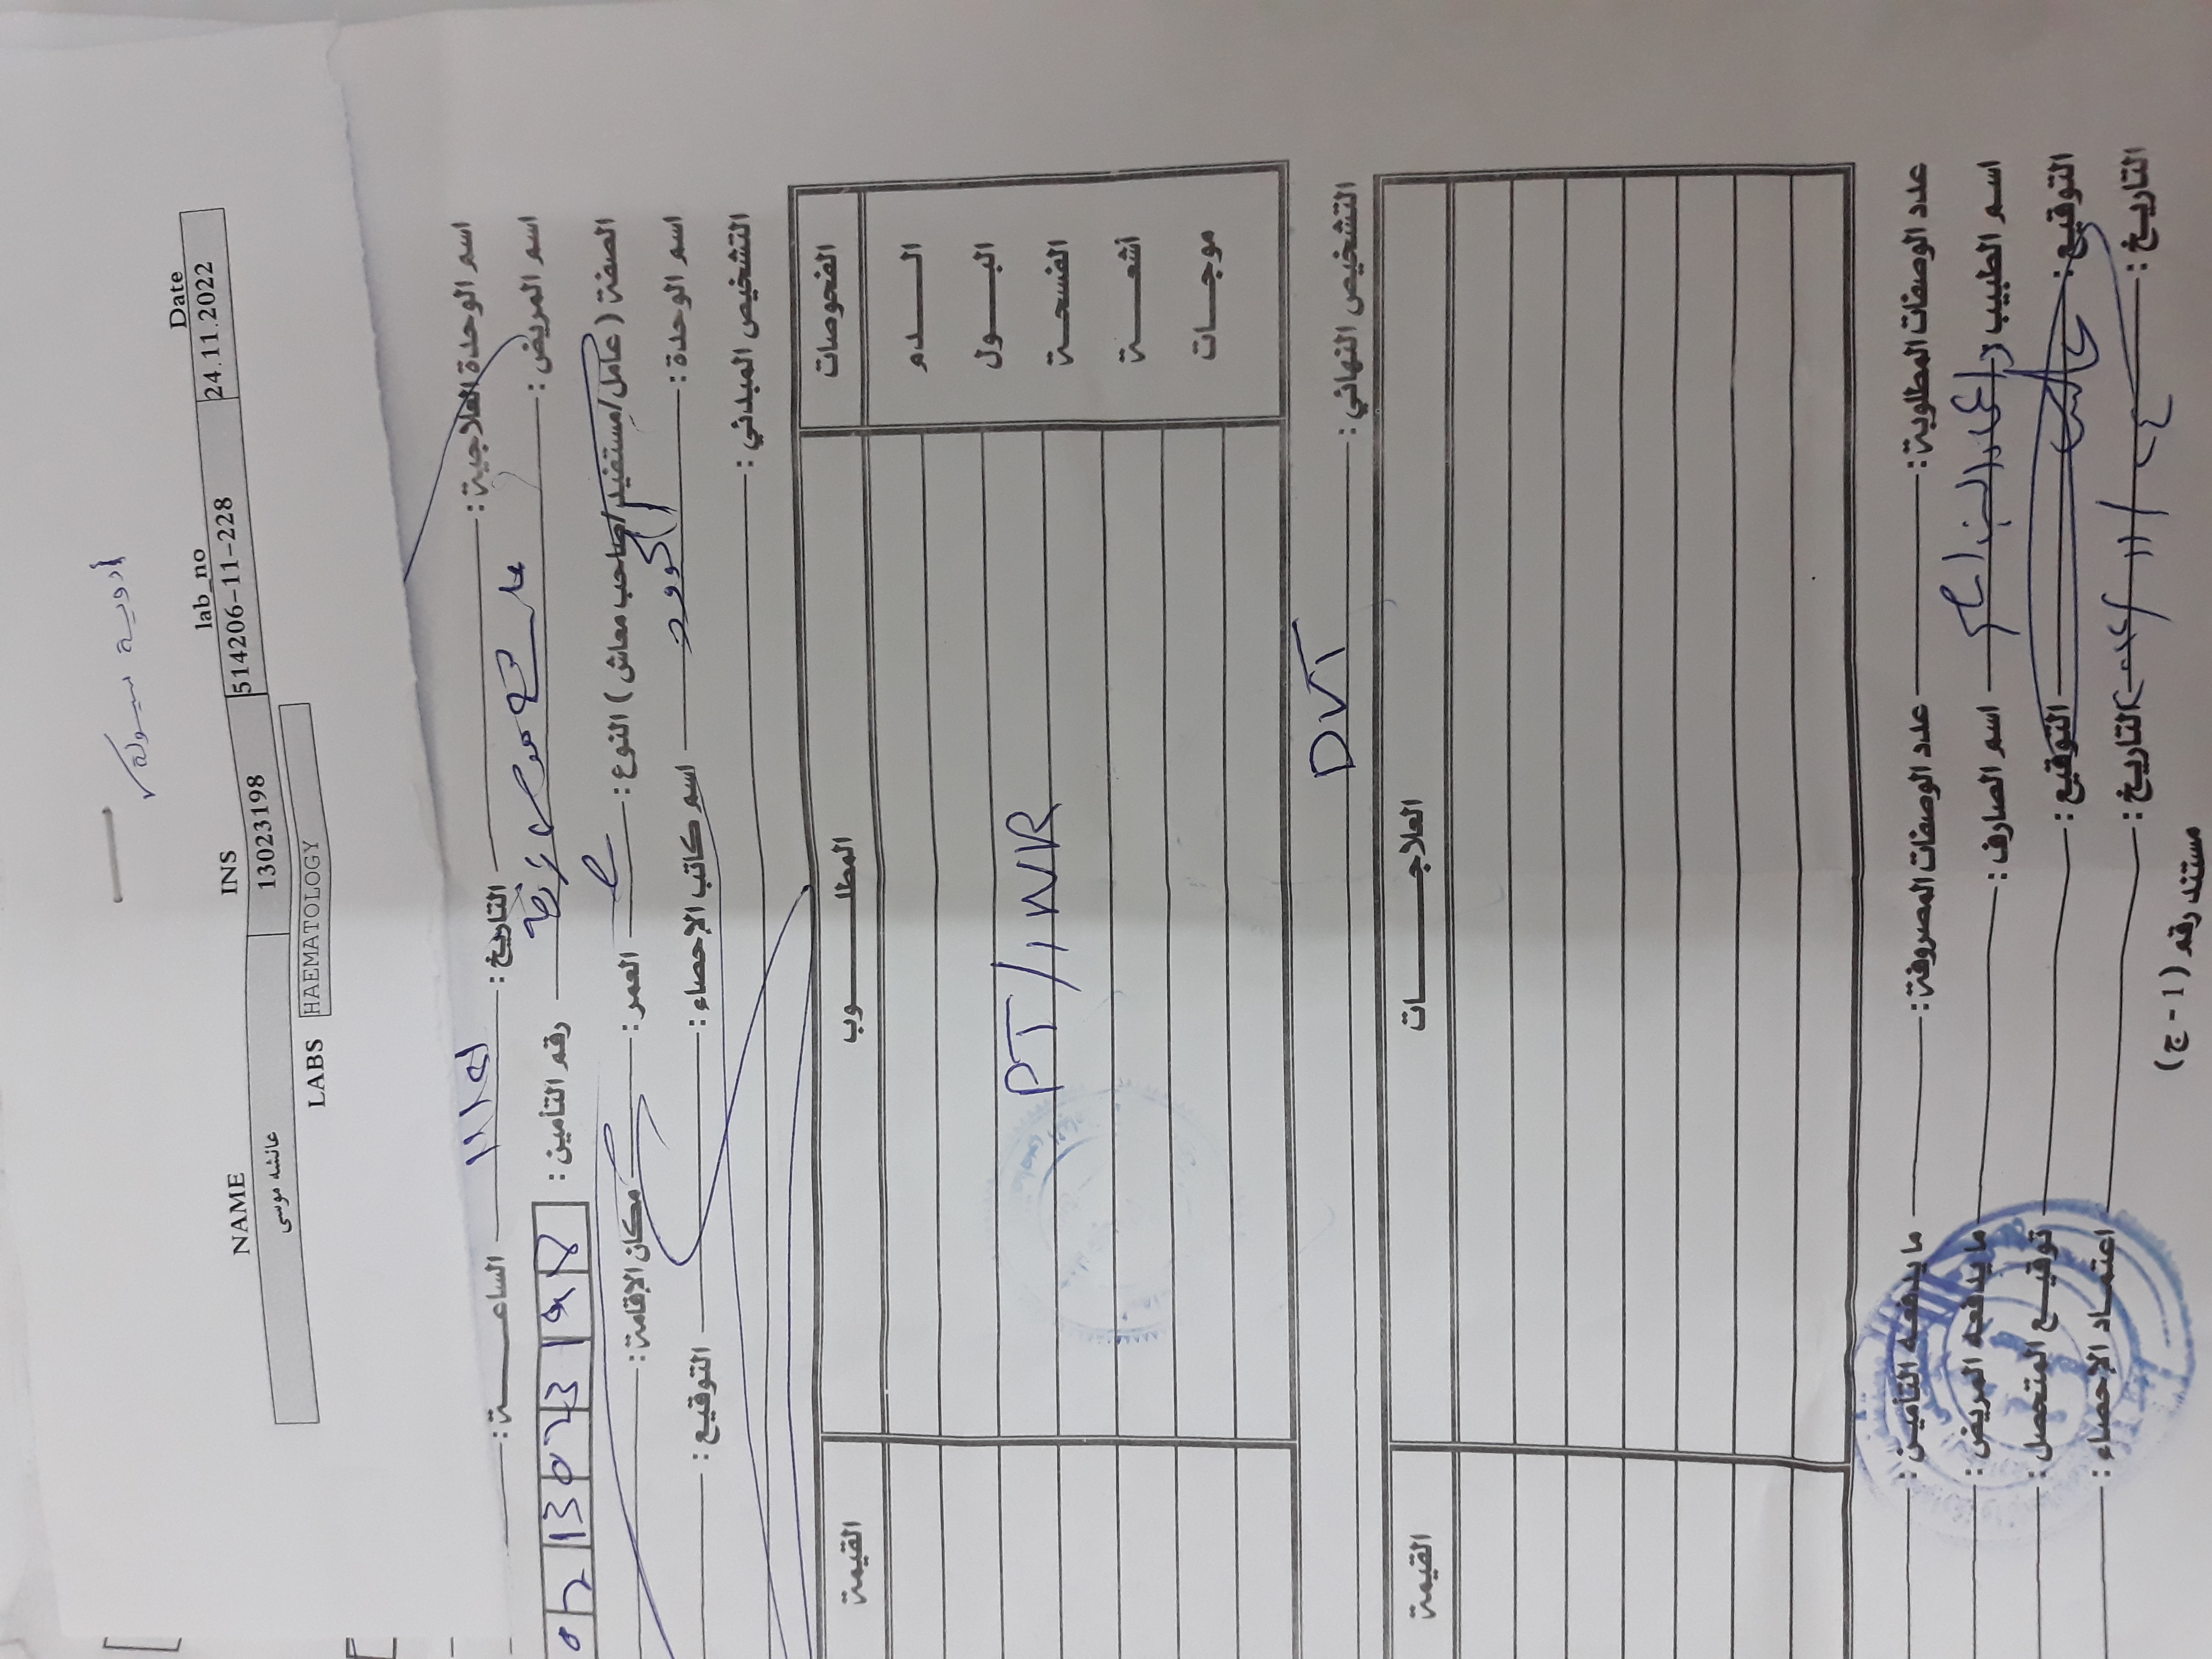 أدوية سيولة ✓
NAME INS lab_no Date
عائشه موسى 13023198 514206-11-228 24.11.2022
LABS HAEMATOLOGY
اسم الوحدة العلاجية : التاريخ : الساعة :
اسم المريض : عائشة موسى رقم التأمين : 0213023198
الصفة ( عامل/مستفيد/صاحب معاش ) النوع : العمر : مكان الإقامة :
اسم الوحدة : اسم كاتب الإحصاء : التوقيع :
التشخيص المبدئي :
الفحوصات المطلوب القيمة
الدم
البول
PT/INR
الفسحة
أشعة
موجات
التشخيص النهائي : DVT
العلاجات القيمة
عدد الوصفات المطلوبة : عدد الوصفات المصروفة : ما يدفعه التأمين :
اسم الطبيب اسم الصارف : ما يدفعه المريض :
التوقيع : التوقيع : توقيع المتحصل :
التاريخ : التاريخ : اعتماد الإحصاء :
مستند رقم (1 - ج)